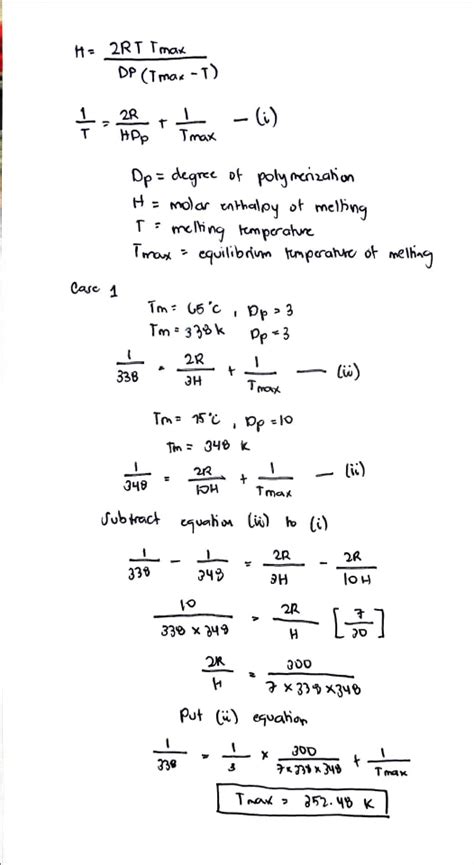 H = 2RT Tmax / DP (Tmax - T)
1/T = 2R/HDp + 1/Tmax — (i)
Dp = degree of polymerization
H = molar enthalpy of melting
T = melting temperature
Tmax = equilibrium temperature of melting
Case 1
Tm = 65°C, Dp = 3
Tm = 338 K Dp = 3
1/338 = 2R/3H + 1/Tmax — (ii)
Tm = 75°C, Dp = 10
Tm = 348 K
1/348 = 2R/10H + 1/Tmax — (ii)
Subtract equation (ii) to (i)
1/338 - 1/348 = 2R/3H - 2R/10H
10 / 338 × 348 = 2R/H [7/30]
2R/H = 300 / 7 × 338 × 348
Put (ii) equation
1/338 = 1/3 × 300 / 7×338×348 + 1/Tmax
Tmax = 352.48 K